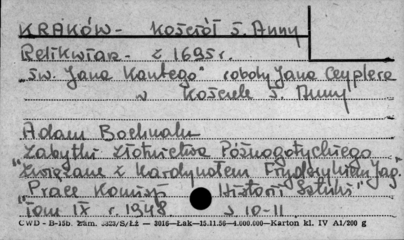 KRAKÓW - Kościół Ś. Anny
Relikwiarz - z 1695 r.
"Św. Jana Kantego" roboty Jana Ceyplera
w Kościele Ś. Anny
Adam Bochnak
Zabytki złotnictwa Późnogotyckiego
"związane z Kardynałem Fryderykiem Jag."
"Prace Komisji Historii Sztuki"
Tom IX r. 1948. s 10-11
CWD - B-15b. Zam. 5823/S/Łż — 3016—Łak—15.11.50—4.000.000—Karton kl. IV A1/200 g